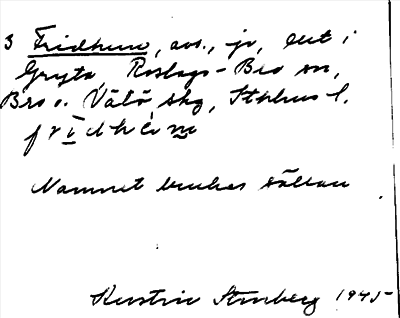 3 Fridhem, avs., jr, litt i
Gryta, Roslags-Bro sn,
Bro o. Vätö skg, Sthlms l.
frìdhèm
Namnet brukas sällan
Kerstin Stenberg 1945